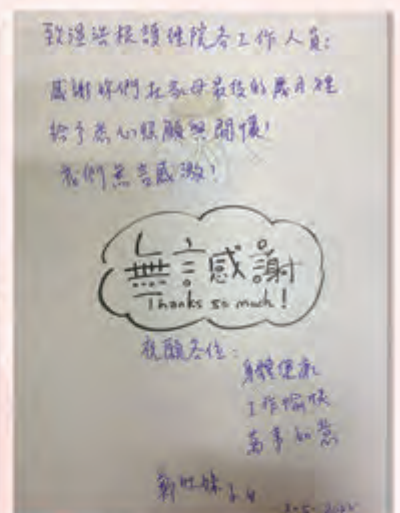 致溫浩根護理院各工作人員:
感謝妳們在家母最後的歲月裡
給予悉心照顧與關懷!
我們無言感激!
無言感謝
Thanks so much!
祝願各位:
身體健康
工作愉快
萬事如意
鄭